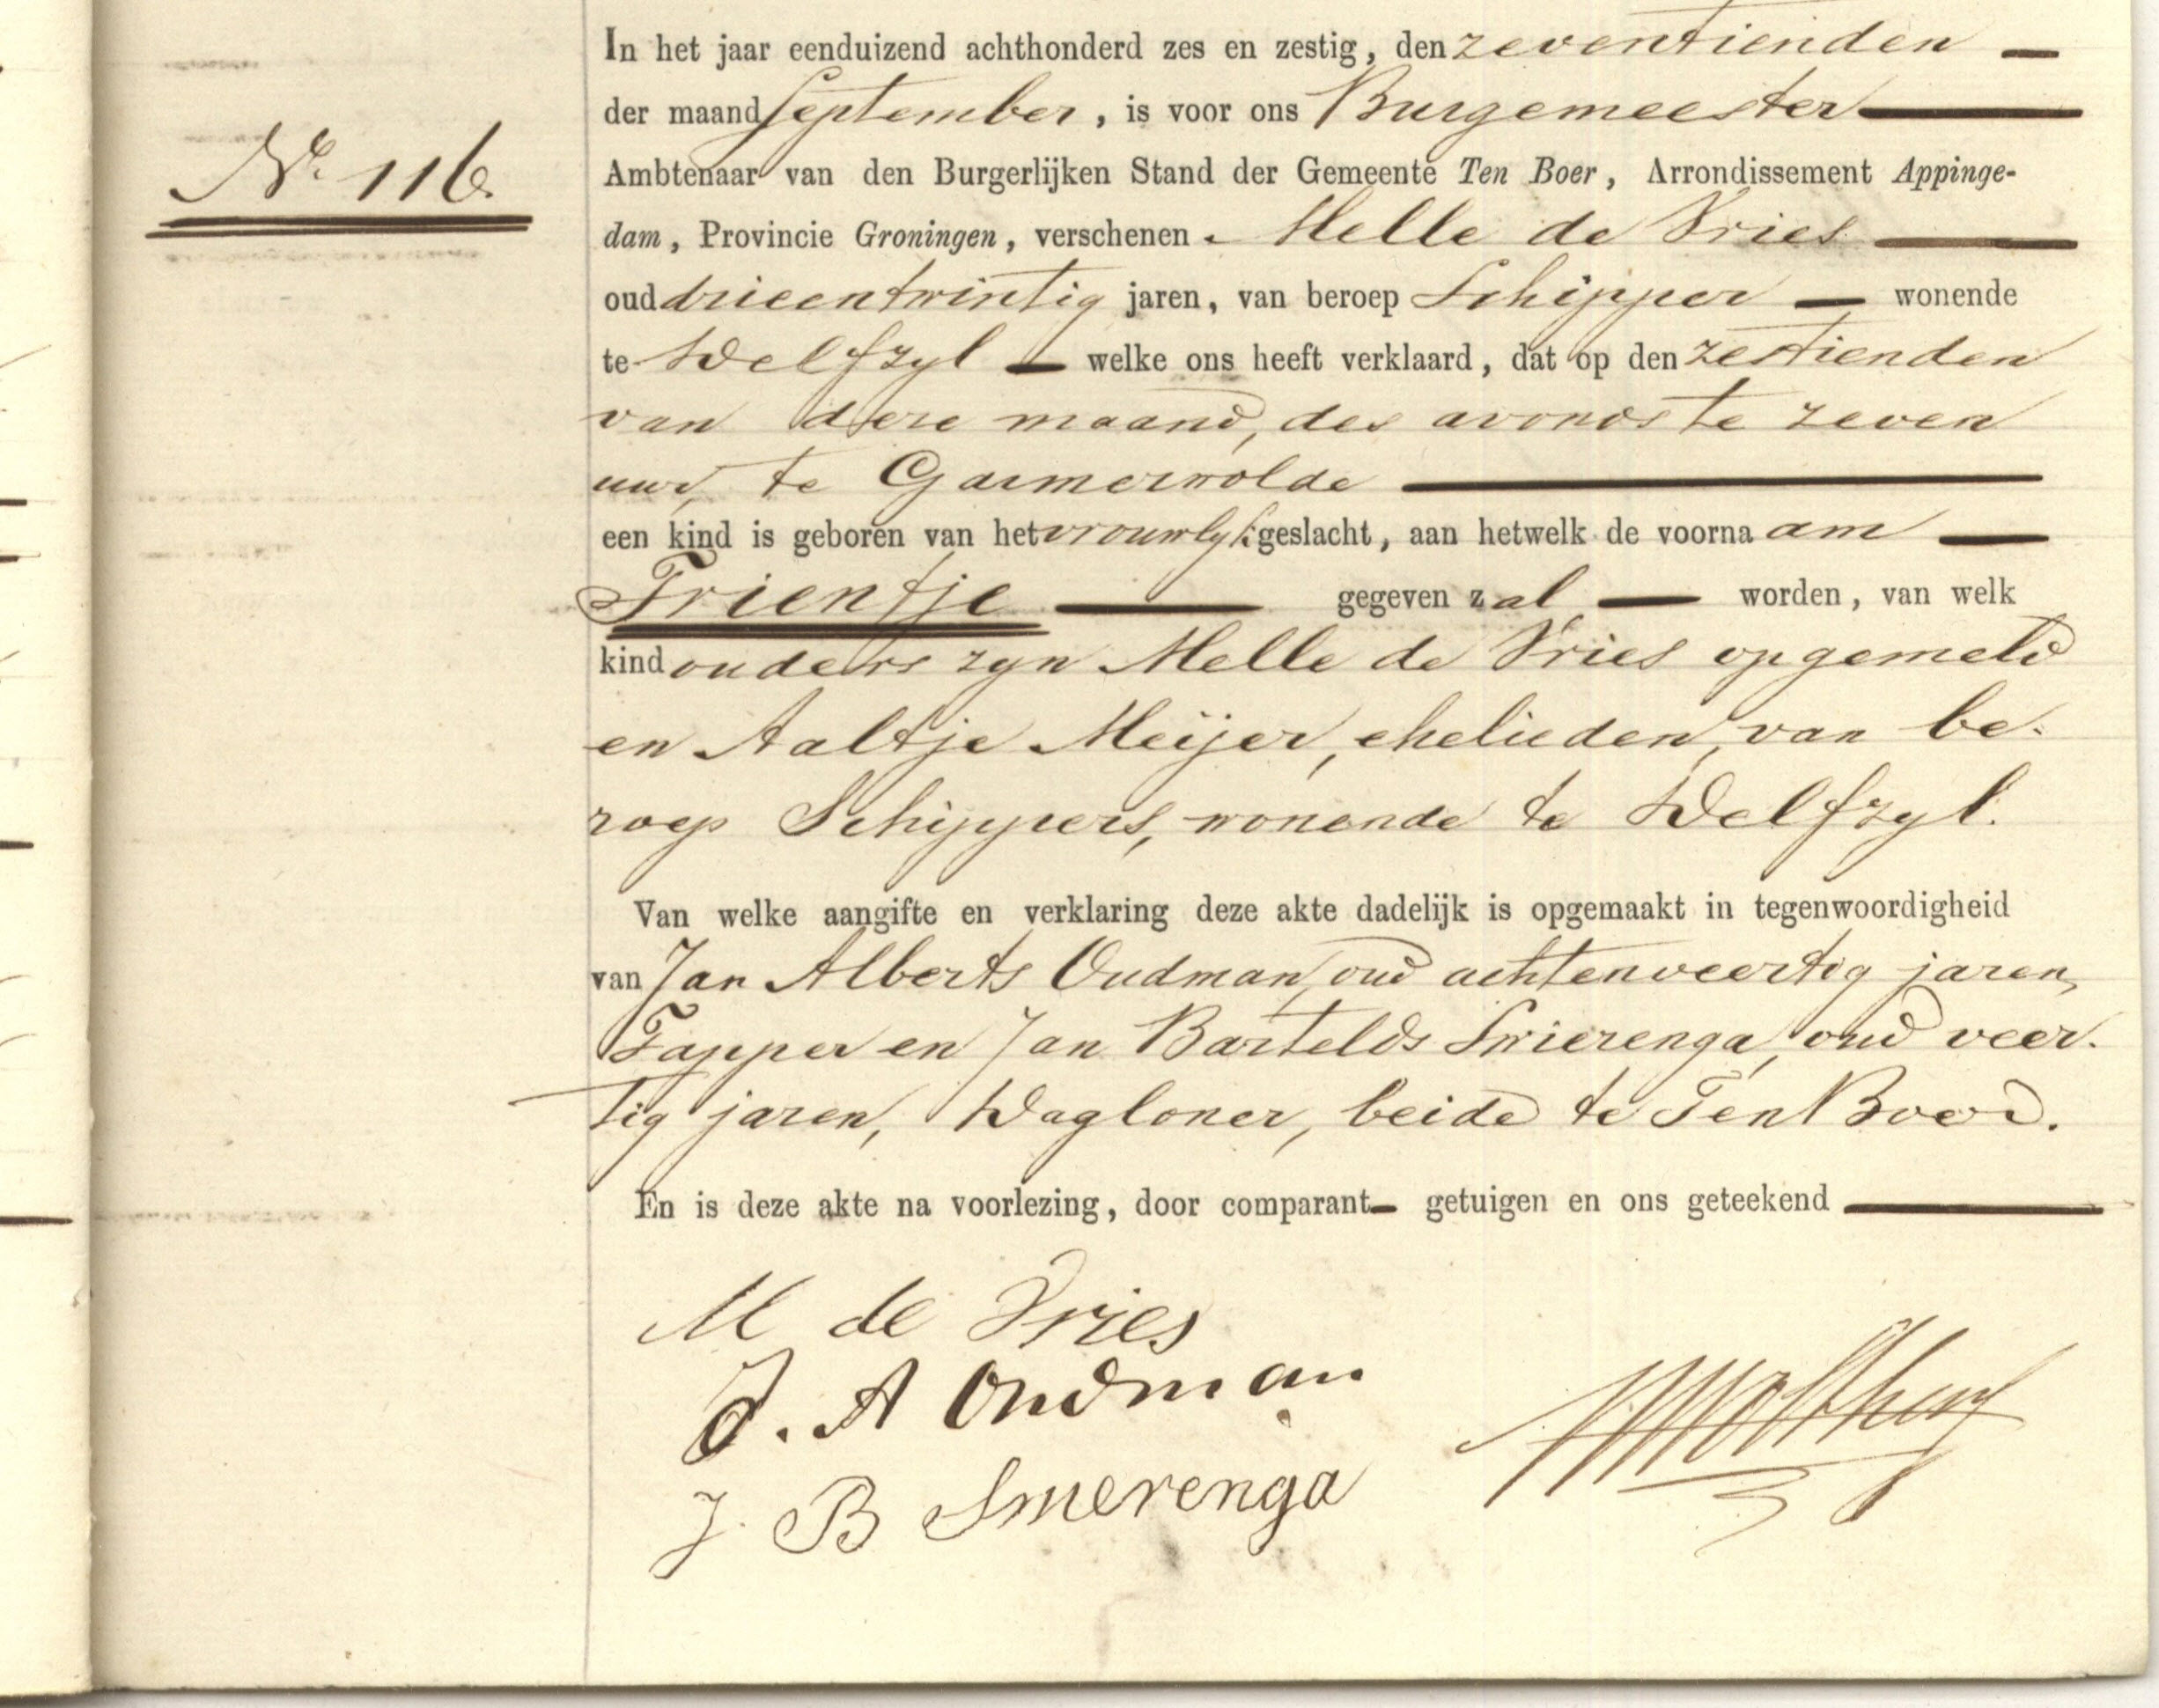 In het jaar eenduizend achthonderd zes en zestig, den zeventienden
der maand September, is voor ons Burgemeester
No. 116.
Ambtenaar van den Burgerlijken Stand der Gemeente Ten Boer, Arrondissement Appinge-
dam, Provincie Groningen, verschenen Melle de Vries
oud drieentwintig jaren, van beroep Schipper wonende
te Delfzyl welke ons heeft verklaard, dat op den zestienden
van deze maand, des avonds te zeven
uur, te Garmerwolde
een kind is geboren van het vrouwlyk geslacht, aan hetwelk de voornaam
Trientje gegeven zal worden, van welk
kind ouders zyn Melle de Vries opgemeld
en Aaltje Meijer, ehelieden, van be-
roep Schippers, wonende te Delfzyl.
Van welke aangifte en verklaring deze akte dadelijk is opgemaakt in tegenwoordigheid
van Jan Alberts Oudman, oud achtenveertig jaren,
Tapper en Jan Bartelds Swierenga, oud veer-
tig jaren, Dagloner, beide te Ten Boer.
En is deze akte na voorlezing, door comparant getuigen en ons geteekend
M de Vries
J. A Oudman
J. B Swierenga